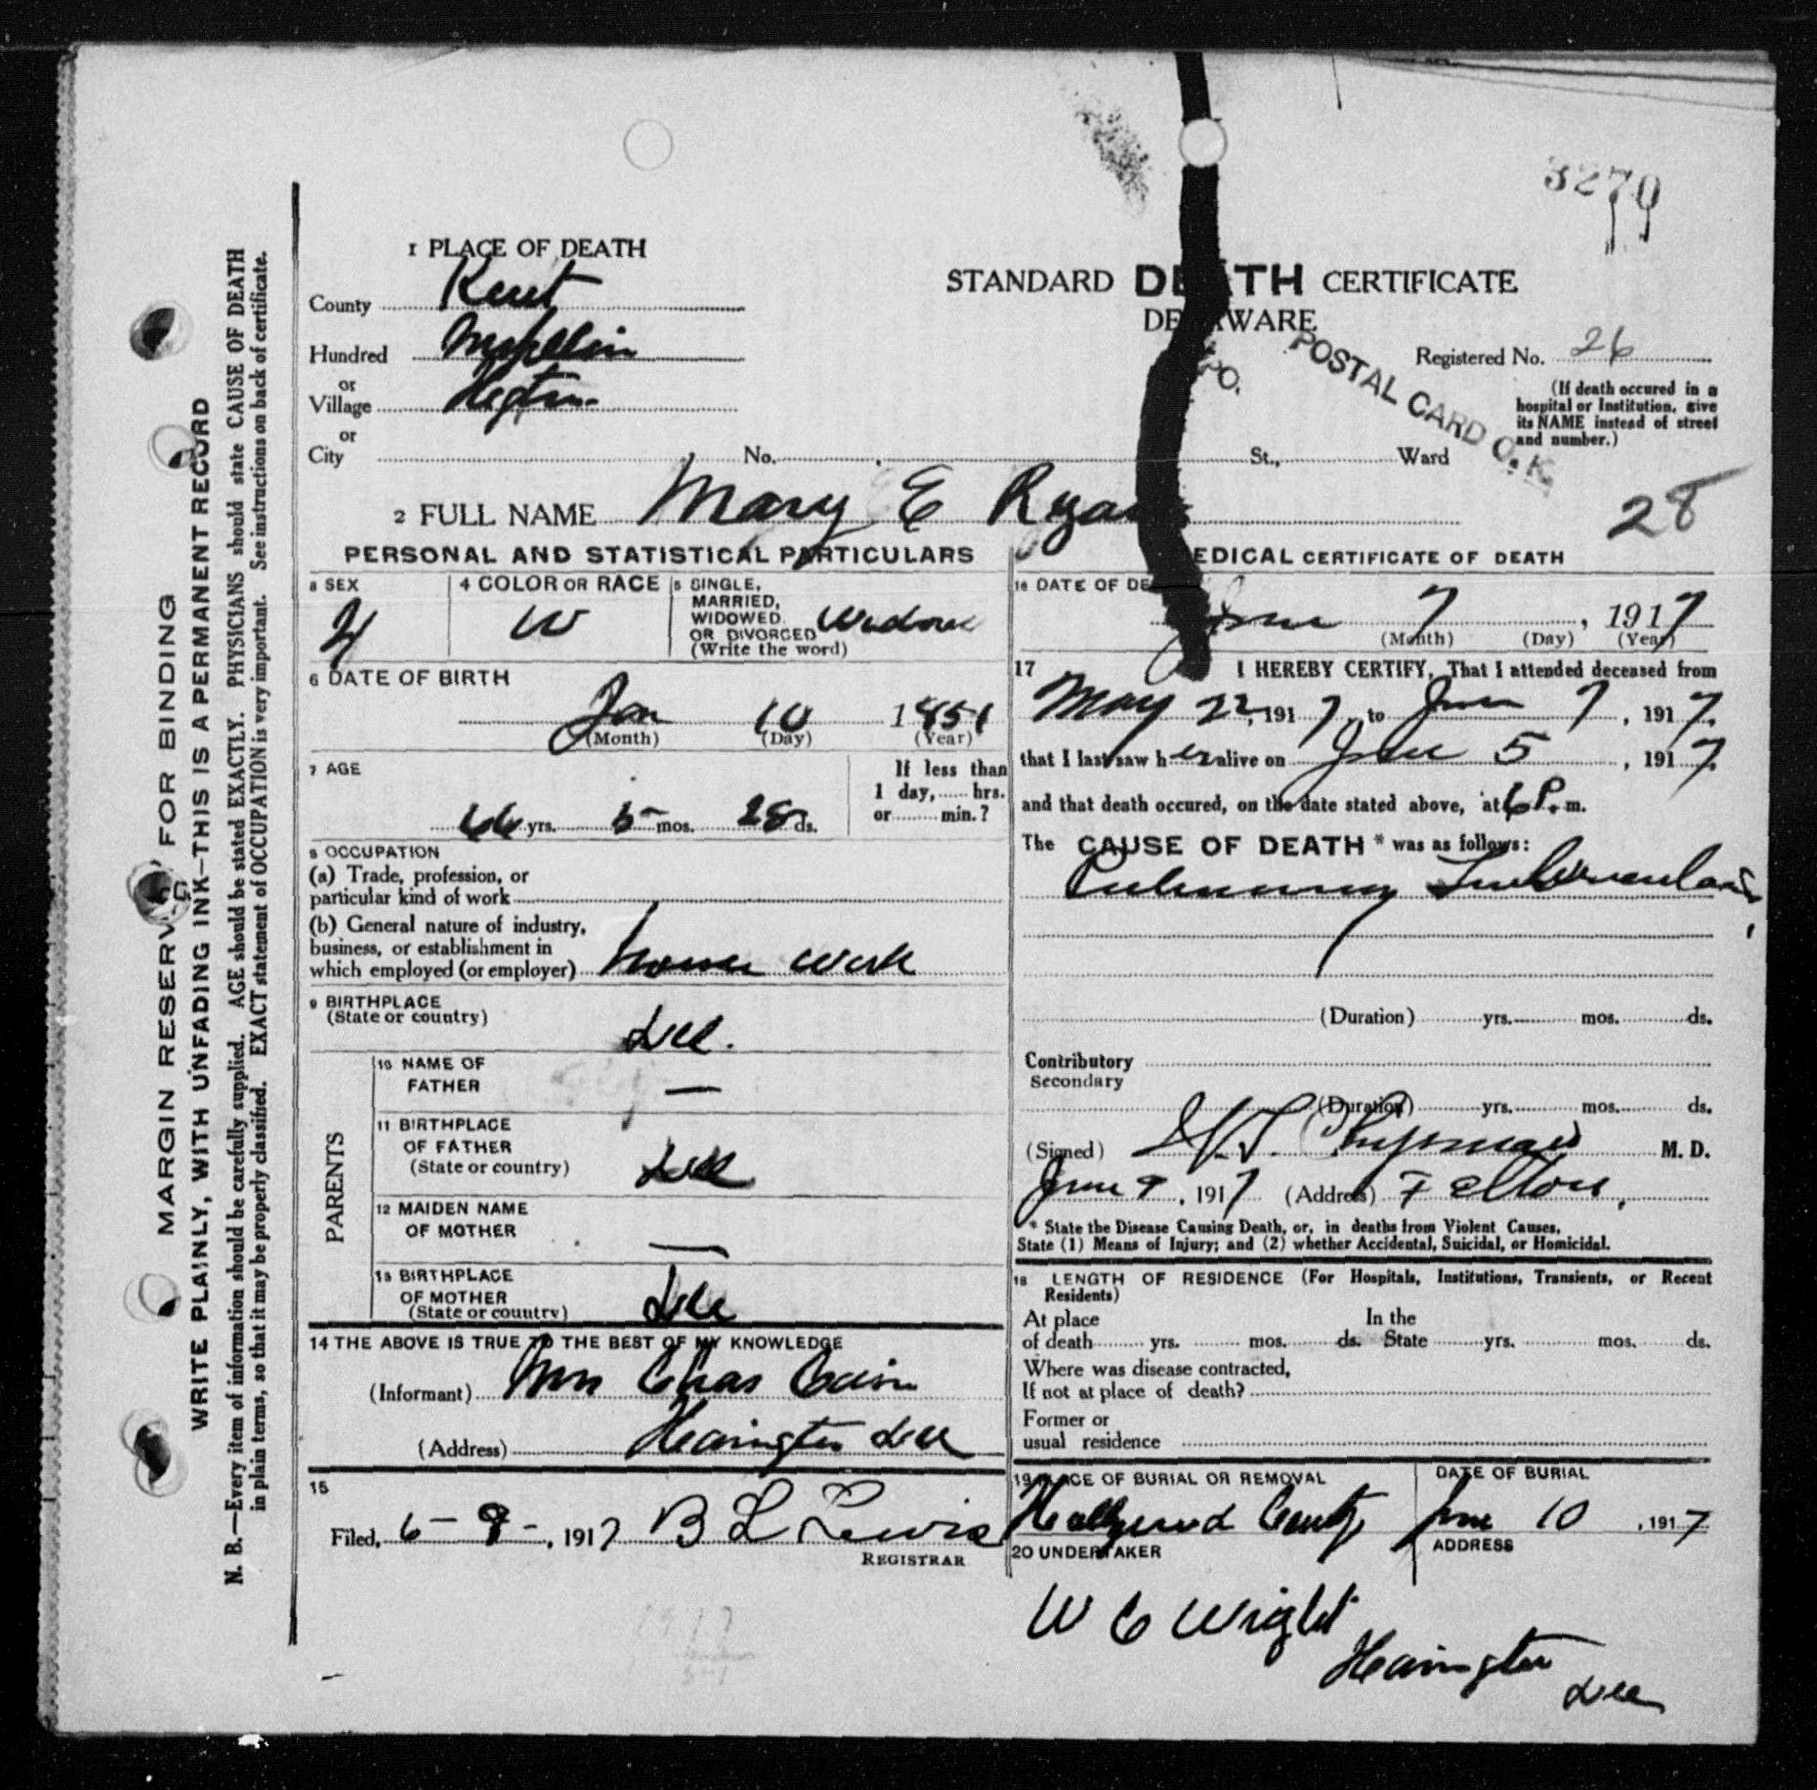 3270
1 PLACE OF DEATH
County Kent
Hundred
or
Village
or
City No. St., Ward
STANDARD DEATH CERTIFICATE
DELAWARE
POSTAL CARD O.K.
Registered No. 26
(If death occured in a
hospital or Institution, give
its NAME instead of street
and number.)
2 FULL NAME Mary E Ryan
28
PERSONAL AND STATISTICAL PARTICULARS
3 SEX
4 COLOR OR RACE
W
5 SINGLE,
MARRIED,
WIDOWED
OR DIVORCED
(Write the word)
Widow
6 DATE OF BIRTH
Jan 10 1851
(Month) (Day) (Year)
7 AGE
66 yrs. 5 mos. 28 ds.
If less than
1 day, hrs.
or min.?
8 OCCUPATION
(a) Trade, profession, or
particular kind of work
(b) General nature of industry,
business, or establishment in
which employed (or employer) House Work
9 BIRTHPLACE
(State or country)
Del.
PARENTS
10 NAME OF
FATHER —
11 BIRTHPLACE
OF FATHER
(State or country) Del
12 MAIDEN NAME
OF MOTHER —
13 BIRTHPLACE
OF MOTHER
(State or country) Del
14 THE ABOVE IS TRUE TO THE BEST OF MY KNOWLEDGE
(Informant) Mrs Chas Cain
(Address) Harington Del
15
Filed, 6 - 9 -, 1917 B L Lewis
REGISTRAR
MEDICAL CERTIFICATE OF DEATH
16 DATE OF DE
June 7, 1917
(Month) (Day) (Year)
17 I HEREBY CERTIFY, That I attended deceased from
May 22, 1917, to June 7, 1917.
that I last saw her alive on June 5, 1917.
and that death occured, on the date stated above, at 6 P. m.
The CAUSE OF DEATH * was as follows:
Pulmonary Tuberculosis
(Duration) yrs. mos. ds.
Contributory
Secondary
(Duration) yrs. mos. ds.
(Signed) M. D.
June 9, 1917 (Address) Felton,
* State the Disease Causing Death, or, in deaths from Violent Causes,
State (1) Means of Injury; and (2) whether Accidental, Suicidal, or Homicidal.
18 LENGTH OF RESIDENCE (For Hospitals, Institutions, Transients, or Recent
Residents)
At place In the
of death yrs. mos. ds. State yrs. mos. ds.
Where was disease contracted,
If not at place of death?
Former or
usual residence
19 PLACE OF BURIAL OR REMOVAL
DATE OF BURIAL
June 10, 1917
20 UNDERTAKER
ADDRESS
W C Wright
Harington
Del
MARGIN RESERVED FOR BINDING
WRITE PLAINLY, WITH UNFADING INK—THIS IS A PERMANENT RECORD
N. B.—Every item of information should be carefully supplied. AGE should be stated EXACTLY. PHYSICIANS should state CAUSE OF DEATH
in plain terms, so that it may be properly classified. EXACT statement of OCCUPATION is very important. See instructions on back of certificate.